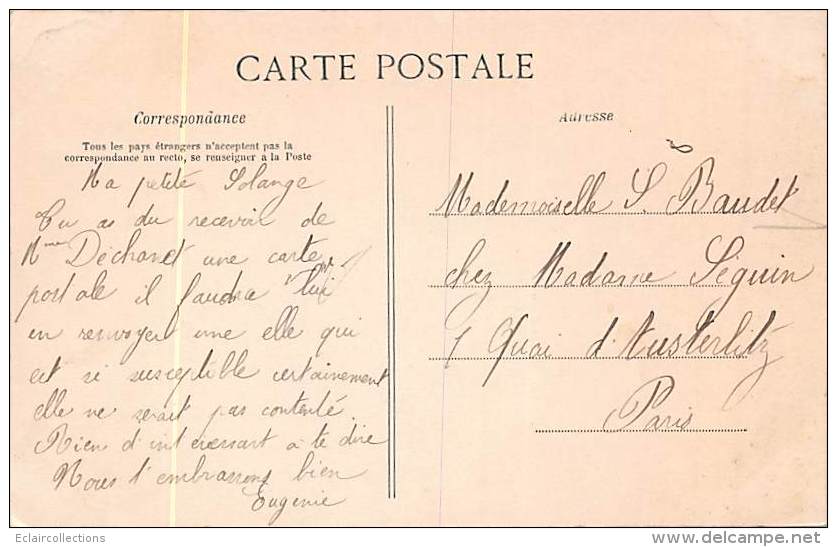 CARTE POSTALE
Correspondance
Tous les pays étrangers n'acceptent pas la
correspondance au recto, se renseigner à la Poste
Ma petite Solange
Tu as du recevoir de
Mme Déchanet une carte
postale il faudra lui
en renvoyer une elle qui
est si susceptible certainement
elle ne serait pas contente.
Rien d'intéressant à te dire
Nous t'embrassons bien
Eugénie
Adresse
Mademoiselle S. Baudet
chez Madame Séguin
1 Quai d'Austerlitz
Paris
Eclaircollections
delcampe.net